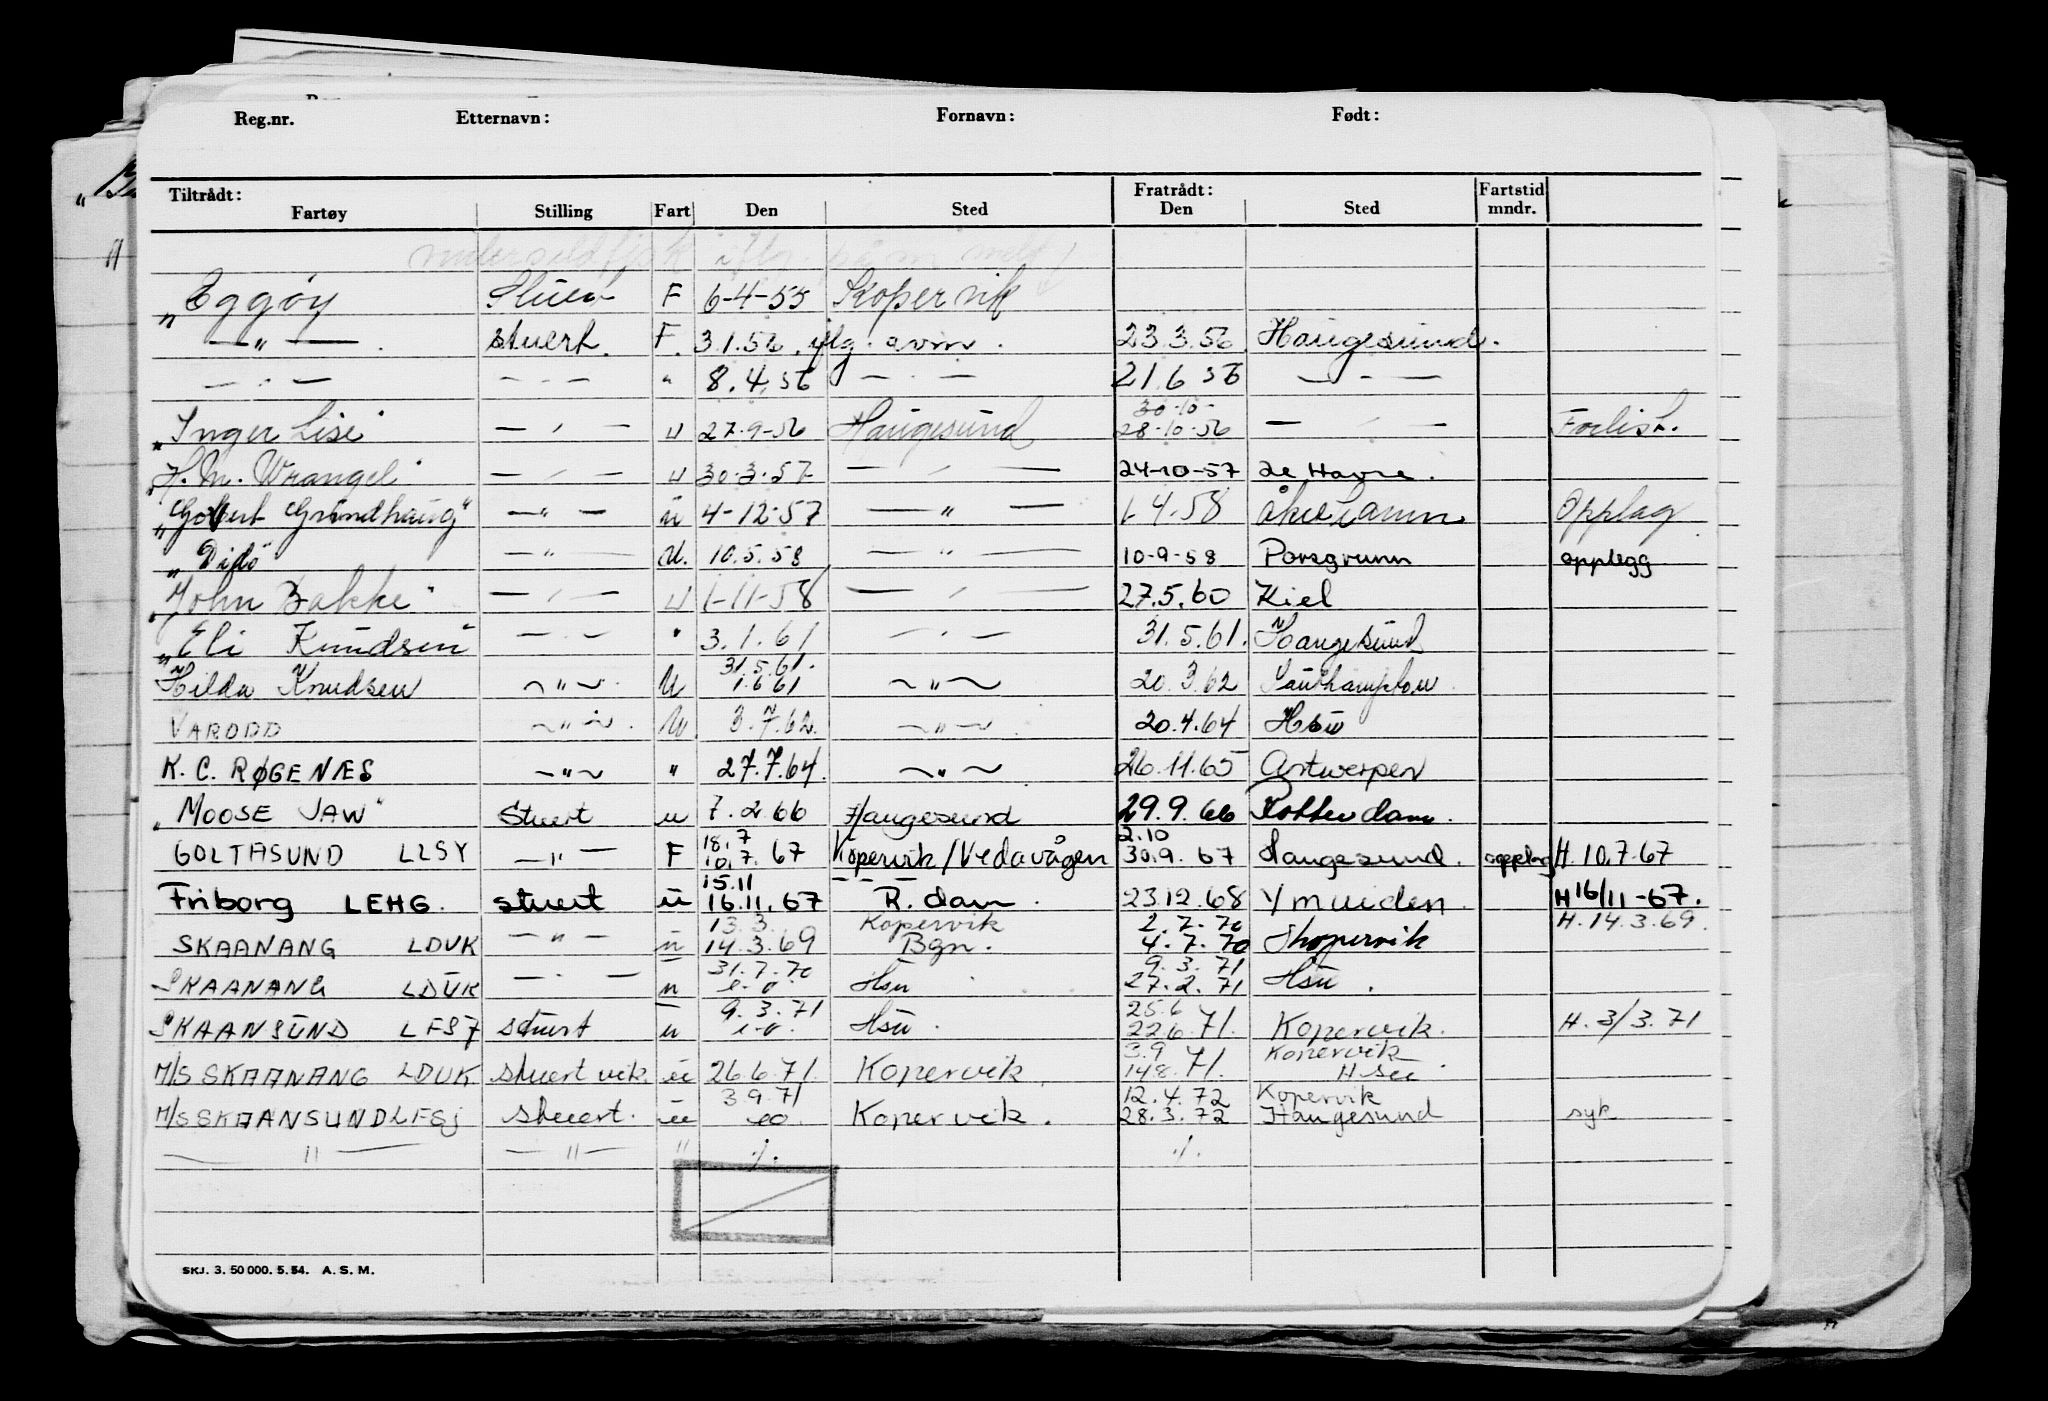 Reg.nr. Etternavn: Fornavn: Født:
Tiltrådt: Fratrådt: Fartstid
Fartøy Stilling Fart Den Sted Den Sted mndr.
"Eggøy Stuert F 6-4-55 Kopervik
— " — . stuert. F. 3.1.56. iflg. avm. 23.3.56. Haugesund.
— . — — . — " 8.4.56 — . — 21.6 56 — . —
30-10-
"Inger Lise" — " — u 27.9-56 Haugesund 28-10-56 — " — Forlist.
"H.M. Wrangel" — " — u 30-3-57 — " — 24-10-57 Le Havre.
"Gobert Grindhaug" — " — u 4-12-57 — " — 1-4.58 Åkrehamn Opplag
"Dido — " — u. 10.5.58 — " — 10-9-58 Porsgrunn opplegg
"John Bakke" — " — u 1-11-58 — " — 27.5.60 Kiel
"Eli Knudsen" — . — " 3.1.61 — . — 31.5.61. Haugesund
31.5.61.
Hilda Knudsen — " — . u 1.6 61 — " — 20.3.62 Southampton
VARODD — " — . u. 3.7.62. — " — 20.4.64 Hsu
K. C. RØGENÆS — " — " 27.7.64. — " — 26.11.65 Antwerpen
"MOOSE JAW" Stuert u 7.2.66 Haugesund 29.9.66 Rotterdam.
18.7 2.10
GOLTASUND LLSY — " — F 10.7.67 Kopervik/Vedavågen 30.9.67 Haugesund. opplag H.10.7.67
15.11
Friborg LEHG. stuert u 16.11.67 R.dam. 23.12.68 Ymuiden. H16/11-67.
13.3. Kopervik 2.7.70 H.14.3.69.
SKAANANG LDUK — " — u 14.3.69 Bgn. 4.7.70 Kopervik
31.7.70 9.3.71
SKAANANG LDUK — . — u e.o. Hsu 27.2.71 Hsu.
9.3.71 25.6
SKAANSUND LFSJ stuert u e.o. Hsu. 22.6.71. Kopervik. H.3/3.71
3.9 Kopervik
M/S SKAANANG LDUK stuert vik. u 26.6.71. Kopervik. 14.8.71. H.su
3.9.71 12.4.72 Kopervik
M/S SKAANSUND LFSj stuert. u eo. Kopervik. 28.3.72 Haugesund syk
— " — — " — " ./. ./.
SKJ. 3. 50 000. 5. 54. A. S. M.